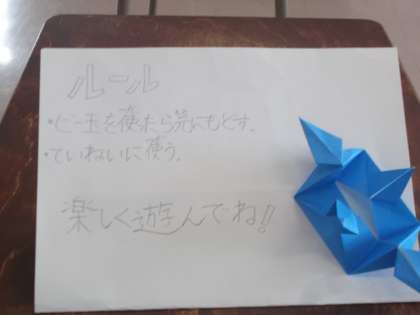 ルール
・ビー玉を使ったら元にもどす。
・ていねいに使う。
楽しく遊んでね!!